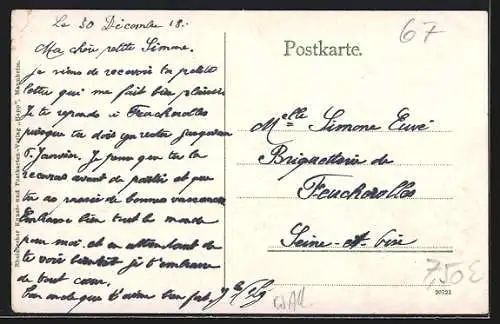 Le 30 Décembre 18.
Ma chère petite Simone.
je viens de recevoir ta petite
lettre qui me fait bien plaisir
Je te reponds à Feucherolles
puisque tu dois y rester jusqu'au
5 Janvier. Je pense que tu la
recevras avant de partir et que
tu as passé de bonnes vacances
Embrasse bien tout le monde
pour moi et en attendant de
te voir bientôt je t'embrasse
de tout cœur.
Ton oncle que t'aime bien fort,
Postkarte.
67
Melle Simone
Briqueterie de
Feucherolles
Seine-et-Oise
7,50€
Rheinischer Kunst- und Postkarten-Verlag „Rapp“, Mannheim.